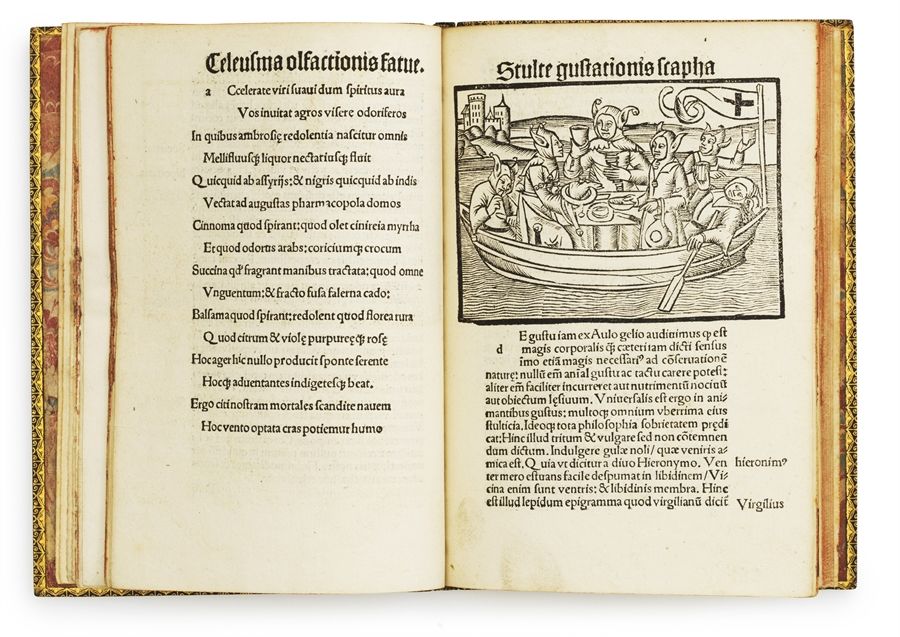 Celeusma olfactionis fatue.
a Ccelerate viri suaui dum spiritus aura
Vos inuitat agros visere odoriferos
In quibus ambrosię redolentia nascitur omnis
Mellifluusqȝ liquor nectariusqȝ fluit
Quicquid ab assyrijs: & nigris quicquid ab indis
Vectat ad augustas pharmacopola domos
Cinnoma quod spirant: quod olet cinireia myrrha
Et quod odorus arabs: coriciumqȝ crocum
Succina qđ fragrant manibus tractata: quod omne
Vnguentum: & fracto fusa falerna cado:
Balsama quod spirant: redolent quod florea rura
Quod citrum & violę purpureęqȝ rosę
Hoc ager hic nullo producit sponte serente
Hocqȝ aduentantes indigetesqȝ beat.
Ergo citi nostram mortales scandite nauem
Hoc vento optata cras potiemur humo
Stulte gustationis scapha
d E gustu iam ex Aulo gelio audiuimus ꝙ est
magis corporalis qȝ cæteri iam dicti sensus
imo etiā magis necessariꝰ ad cōseruationē
naturę: nullū em̄ anīal gustu ac tactu carere potest:
aliter em̄ faciliter incurreret aut nutrimentū nociuū
aut obiectum lęsiuum. Vniuersalis est ergo in ani-
mantibus gustus: multoqȝ omnium vberrima eius
stulticia. Ideoqȝ tota philosophia sobrietatem prędi
cat: Hinc illud tritum & vulgare sed non cōtemnen
dum dictum. Indulgere gulæ noli/ quæ veniris a-
mica est. Quia vt dicitur a diuo Hieronymo. Ven
ter mero estuans facile despumat in libidinem/ Vi-
cina enim sunt ventris: & libidinis membra. Hinc
est illud lepidum epigramma quod virgilianū dicit̄
hieronimꝰ
Virgilius